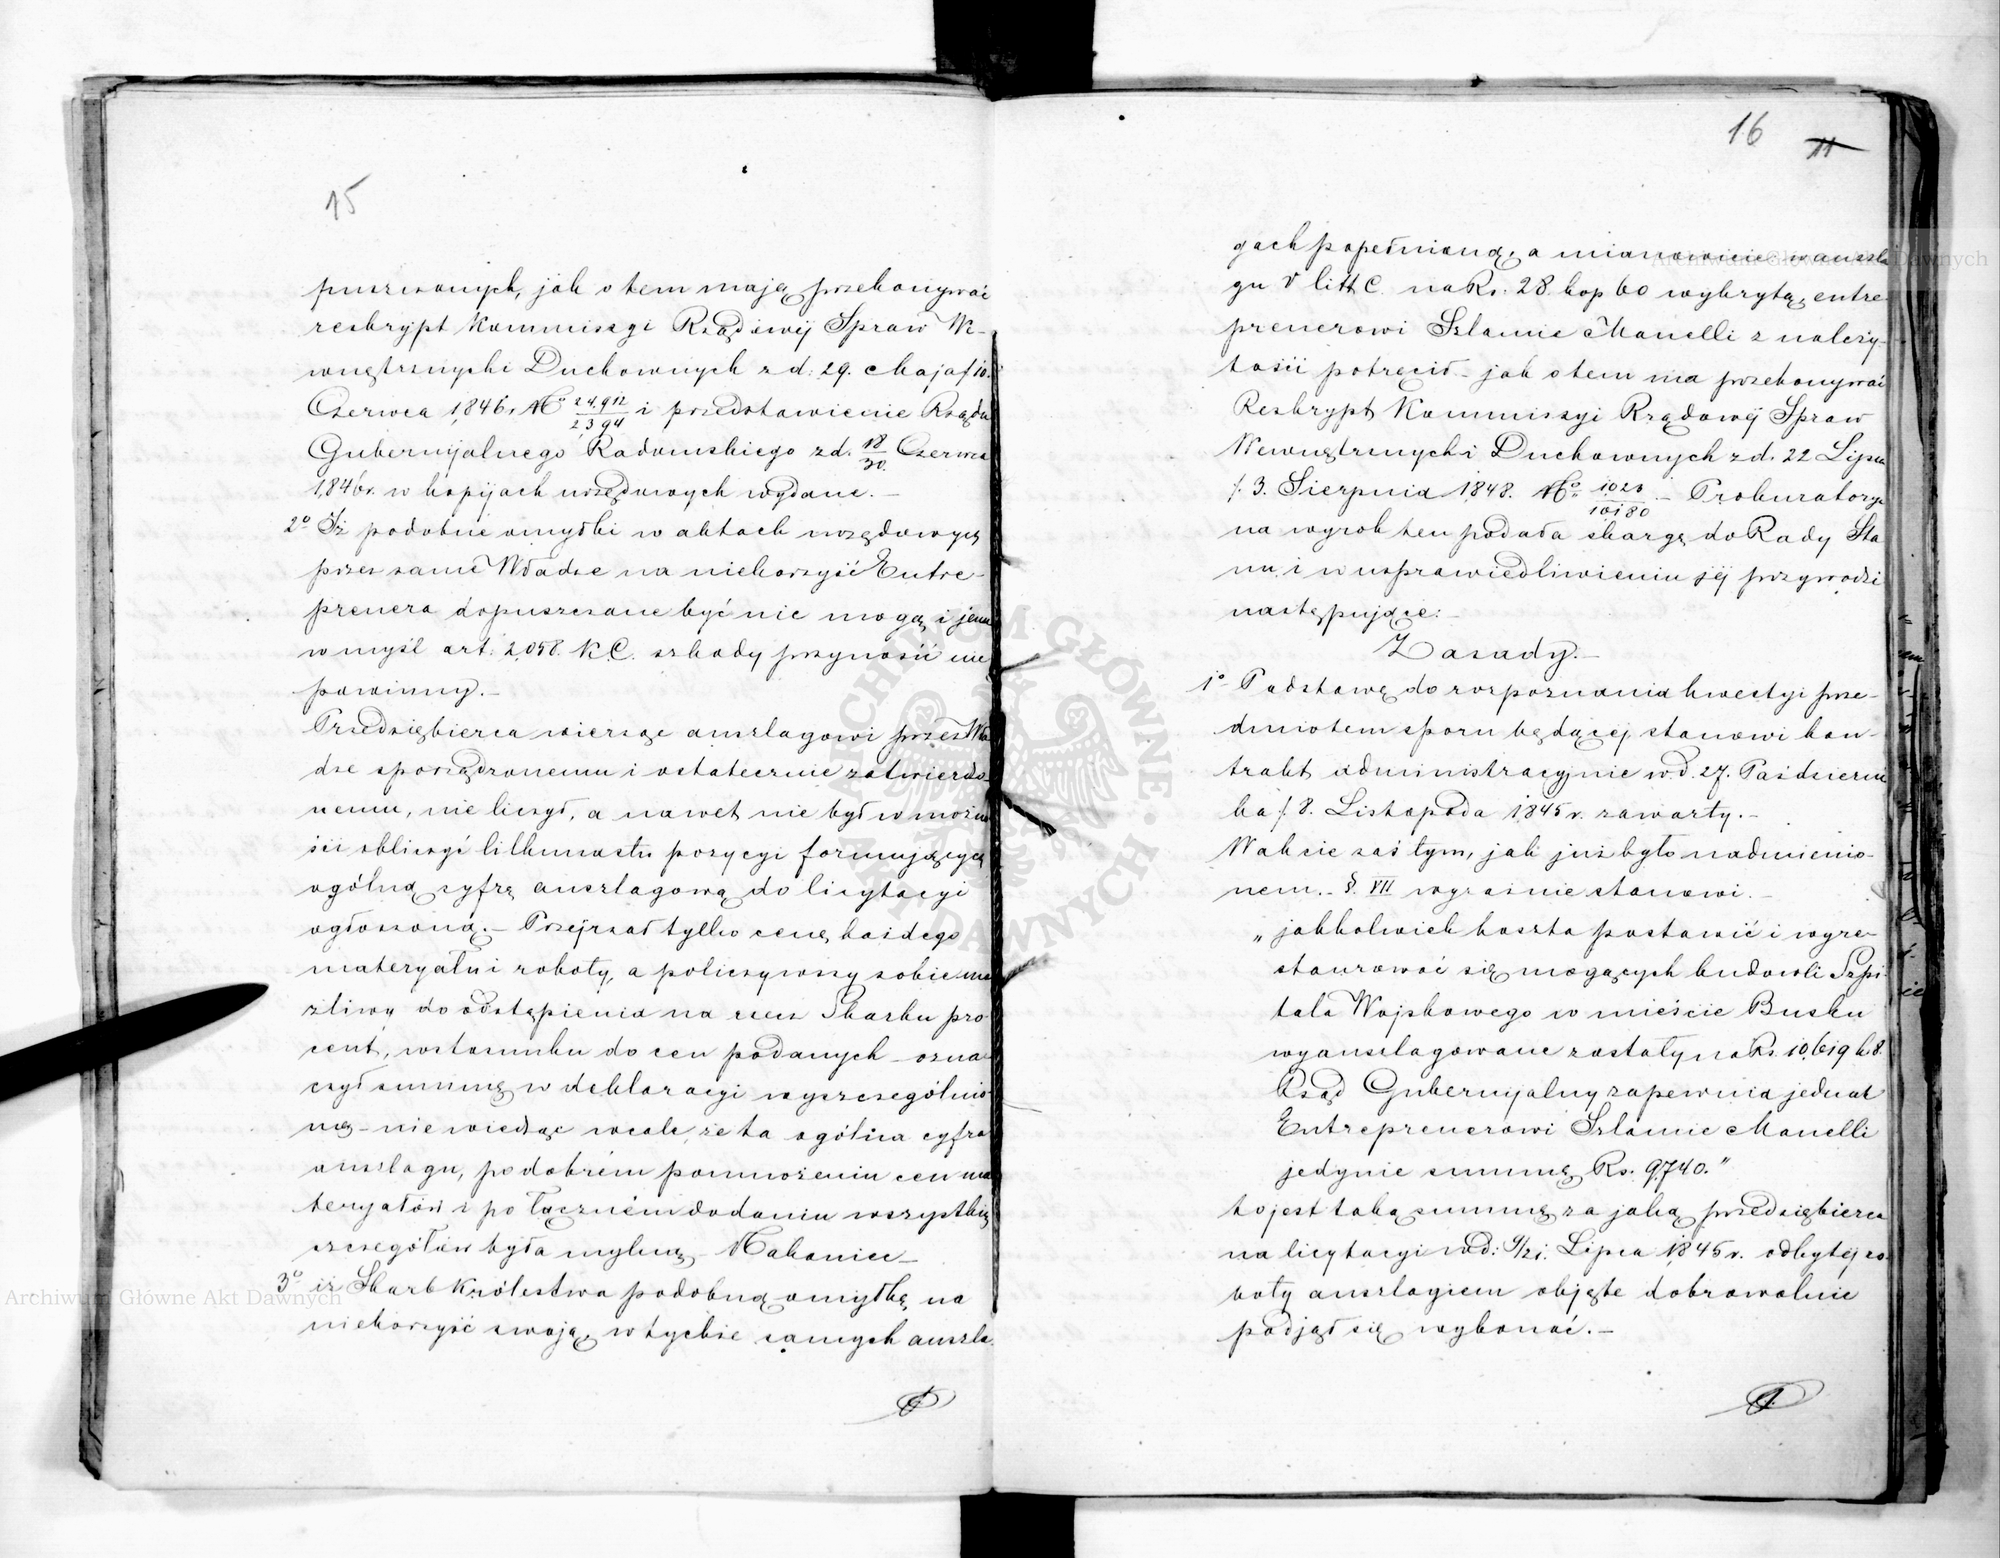 15
puszczonych, jak o tem mają przekonywać
reskrypt Kommissyi Rządowéj Spraw We-
wnętrznych i Duchownych z d: 29. Maja / 10.
Czerwca 1846. No 24.912/2394 i przedstawienie Rządu
Gubernyjalnego Radomskiego z d. 18/30. Czerwca
1846 r. w kopijach urzędowych wydane. —
2o Iż podobne omyłki w aktach urzędowych
przez same Władze na niekorzyść Entre-
prenera dopuszczane być nie mogą i jemu
w myśl art. 2,058. K.C. szkody przynosić nie
powinny. —
Przedsiębierca wierząc anszlagowi przez Wła
dze sporządzonemu i ostatecznie zatwierdzo
nemu, nie liczył, a nawet nie był w możno
ści obliczyć kilkunastu pozycyi formujących
ogólną cyfrę anszlagową do licytacyi
ogłoszoną. — Przejrzał tylko cenę każdego
materyału i roboty, a policzywszy sobie mo
żliwy do odstąpienia na rzecz Skarbu pro-
cent, w stosunku do cen podanych — ozna-
czył summę w deklaracyi wyszczególnio
ną — nie wiedząc wcale, że ta ogólna cyfra
anszlagu, po dobrém pomnożeniu cen ma
teryałów i po łączném dodaniu wszystkich
szczegółów była mylną — Nakoniec —
3o iż Skarb Królestwa podobną omyłkę na
niekorzyść swoją, w tychże samych anszla-
16
11
gach popełnioną, a mianowicie w anszla
gu V litt C. na Rs. 28. kop 60 wykrytą, entre-
prenerowi Szlamie Manelli z należy-
tości potrącił — jak o tem ma przekonywać
Reskrypt Kommissyi Rządowéj Spraw
Wewnętrznych i Duchownych z d. 22 Lipca
/. 3. Sierpnia 1848. No 1028/10180 . — Prokuratorya
na wyrok ten podała skargę do Rady Sta
nu i w usprawiedliwieniu jéj przywodzi
następujące: —
Zasady. —
1o Podstawę do rozpoznania kwestyi prze-
dmiotem sporu będącéj stanowi kon-
trakt administracyjnie w d. 27. Październi
ka /. 8. Listopada 1845 r. zawarty. —
W akcie zaś tym, jak już było nadmienio-
nem. — §. VII wyraźnie stanowi. —
„ jakkolwiek koszta postawić i wyre-
staurować się mogących budowli Szpi-
tala Wojskowego w mieście Busku
wyanszlagowane zostały na Rs. 10,619 k 8.
Rząd Gubernyjalny zapewnia jednak
Entreprenerowi Szlamie Manelli
jedynie summę Rs. 9,740."
to jest taką summę za jaką przedsiębierca
na licytacyi w d: 9/21. Lipca 1845 r. odbytéj ro-
boty anszlagiem objęte dobrowolnie
podjął się wykonać. —
Archiwum Główne Akt Dawnych
Archiwum Główne Akt Dawnych
ARCHIWUM GŁÓWNE AKT DAWNYCH